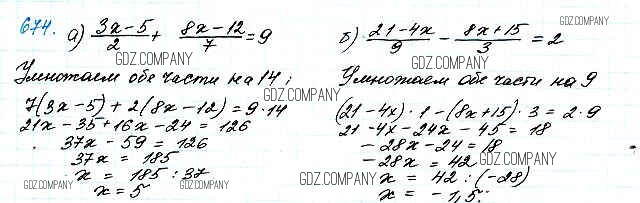 674. а) (3x-5)/2 + (8x-12)/7 = 9
GDZ.COMPANY
Умножаем обе части на 14;
GDZ.COMPANY
7(3x-5) + 2(8x-12) = 9·14
21x - 35 + 16x - 24 = 126
37x - 59 = 126
37x = 185
GDZ.COMPANY
x = 185 : 37
x = 5
б) (21-4x)/9 - (8x+15)/3 = 2
GDZ.COMPANY
Умножаем обе части на 9
(21-4x)·1 - (8x+15)·3 = 2·9
GDZ.COMPANY
21 - 4x - 24x - 45 = 18
-28x - 24 = 18
-28x = 42
GDZ.COMPANY
x = 42 : (-28)
x = -1,5.